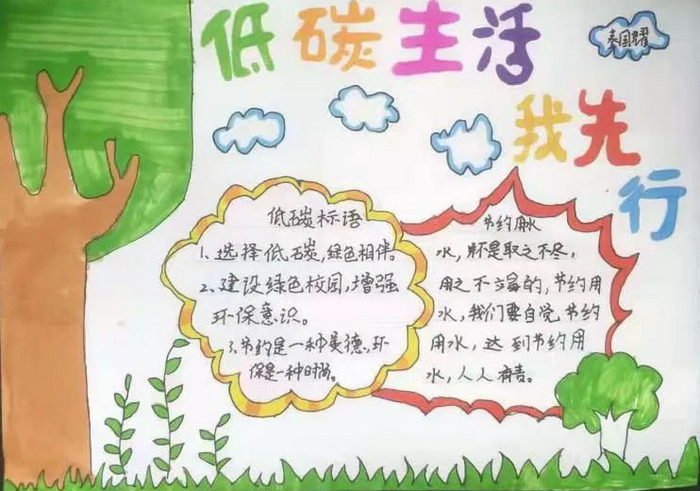 低碳生活
我先
行
低碳标语
1、选择低碳,绿色相伴。
2、建设绿色校园,增强
环保意识。
3.节约是一种美德,环
保是一种时尚。
节约用水
水,不是取之不尽,
用之不竭的,节约用
水,我们要自觉节约
用水,达到节约用
水,人人有责。